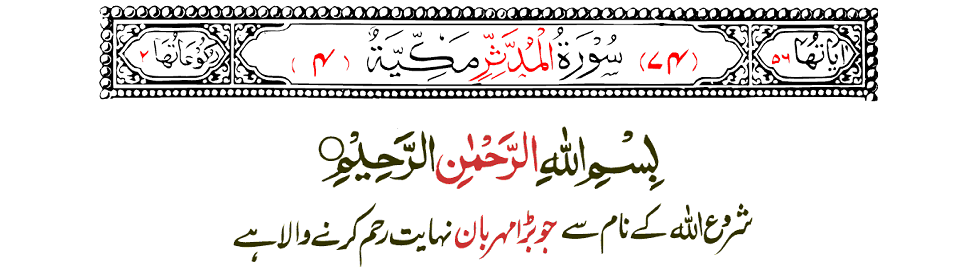 اٰیَاتُهَا ۵۶ (۷۴) سُوْرَةُ الْمُدَّثِّرِ مَكِّیَّةٌ (۴) رُكُوْعَاتُهَا ۲
بِسْمِ اللّٰهِ الرَّحْمٰنِ الرَّحِیْمِ۝
شروع اللہ کے نام سے جو بڑا مہربان نہایت رحم کرنے والا ہے